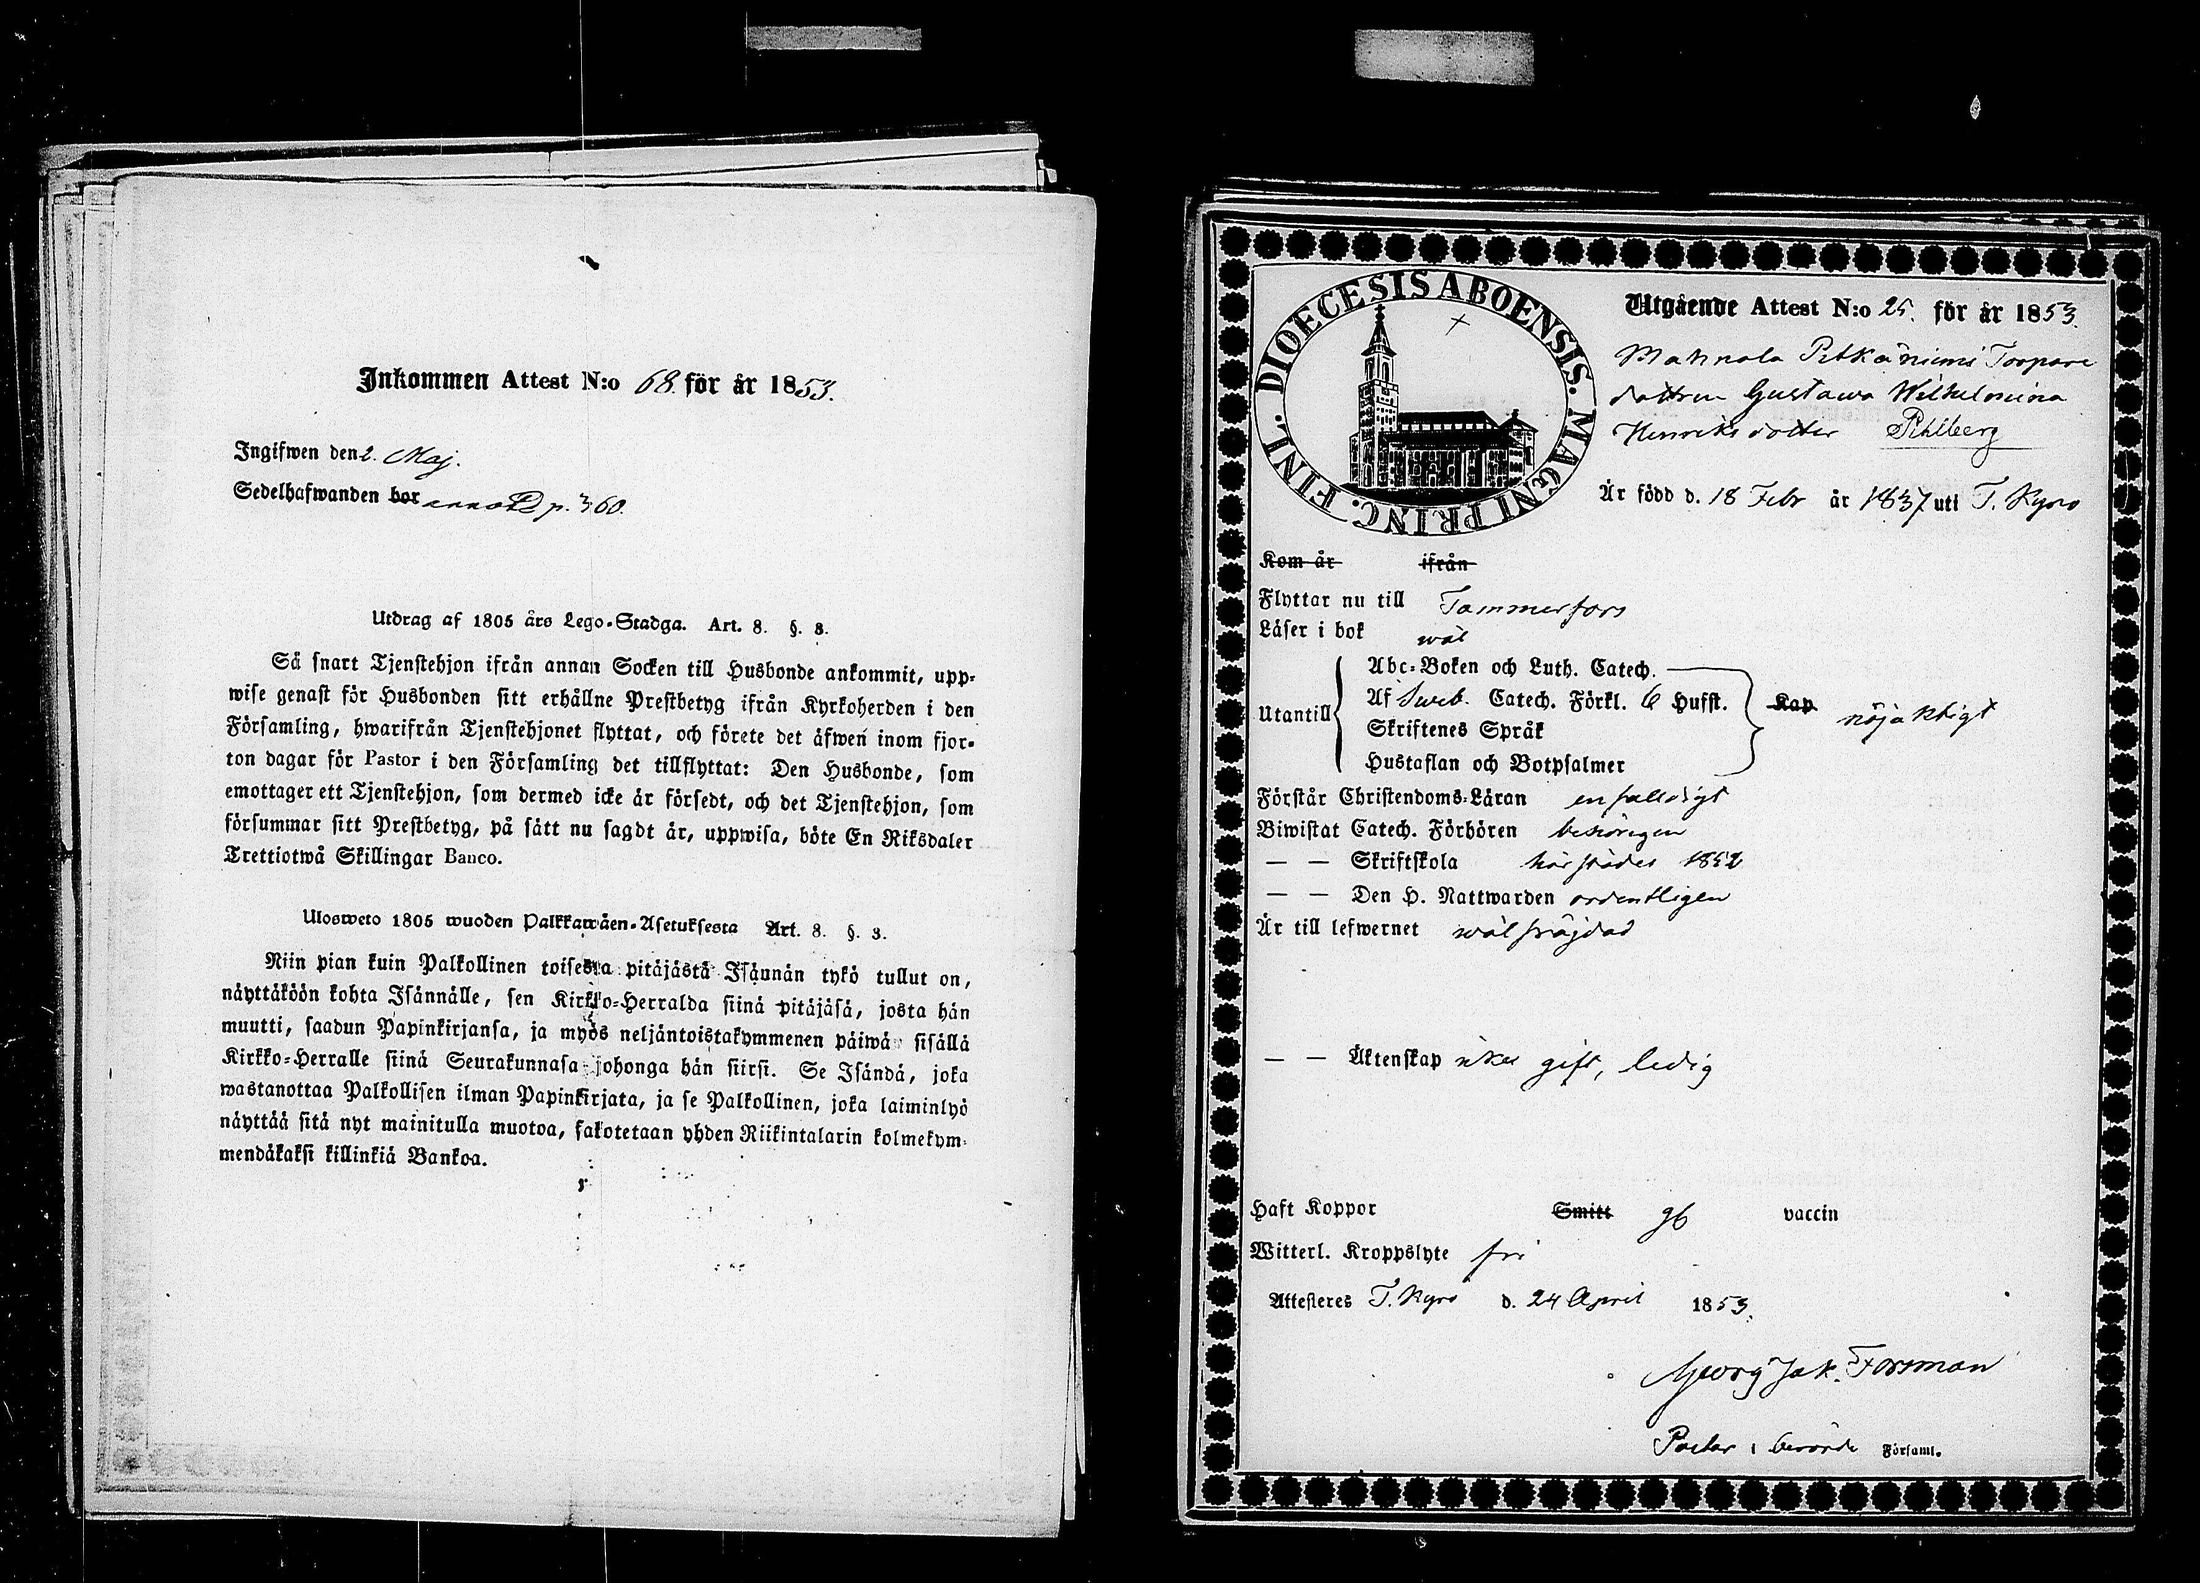 Inkommen Attest N:o 68. för år 1853.
Ingifwen den 2. Maj.
Sedelhafwanden bor annot p. 360.
Utdrag af 1805 års Lego-Stadga. Art. 8. §. 3.
Så snart Tjenstehjon ifrån annan Socken till Husbonde ankommit, upp-
wise genast för Husbonden sitt erhållne Prestbetyg ifrån Kyrkoherden i den
Församling, hwarifrån Tjenstehjonet flyttat, och förete det äfwen inom fjor-
ton dagar för Pastor i den Församling det tillflyttat: Den Husbonde, som
emottager ett Tjenstehjon, som dermed icke är försedt, och det Tjenstehjon, som
försummar sitt Prestbetyg, på sätt nu sagdt är, uppwisa, böte En Riksdaler
Trettiotwå Skillingar Banco.
Ulosweto 1805 wuoden Palkkawäen-Asetuksesta Art. 8. §. 3.
Niin pian kuin Palkollinen toisesta pitäjästä Isännän tykö tullut on,
näyttäköön kohta Isännälle, sen Kirkko-Herralda siinä pitäjäsä, josta hän
muutti, saadun Papinkirjansa, ja myös neljäntoistakymmenen päiwä sisällä
Kirkko-Herralle siinä Seurakunnasa johonga hän siirsi. Se Isändä, joka
wastanottaa Palkollisen ilman Papinkirjata, ja se Palkollinen, joka laiminlyö
näyttää sitä nyt mainitulla muotoa, sakotetaan yhden Riikintalarin kolmekym-
mendäkaksi killinkiä Bankoa.
DIOECESIS ABOENSIS. MAGNI PRINC. FINL.
Utgående Attest N:o 25. för år 1853.
Mahnala Pitkäniemi Torpare
dottren Gustava Wilhelmina
Henriksdotter Pihlberg
Är född d. 18 Febr år 1837 uti T. Kyro
Kom år ifrån
Flyttar nu till Tammerfors
Läser i bok wäl
Utantill
Abc-Boken och Luth. Catech.
Af Sweb. Catech. Förkl. 6 Hufst.
Skriftenes Språk
Hustaflan och Botpsalmer
Kap nöjaktigt
Förstår Christendoms-Läran enfalldigt
Biwistat Catech. Förhören behörigen
— — Skriftskola härstädes 1852
— — Den H. Nattwarden ordentligen
Är till lefwernet wälfräjdad
— — Äktenskap icke gift, ledig
Haft Koppor Smitt gb vaccin
Witterl. Kroppslyte fri
Attesteres T. Kyro d. 24 April 1853.
Georg Jak. Forsman
Pastor i berörde Församl.